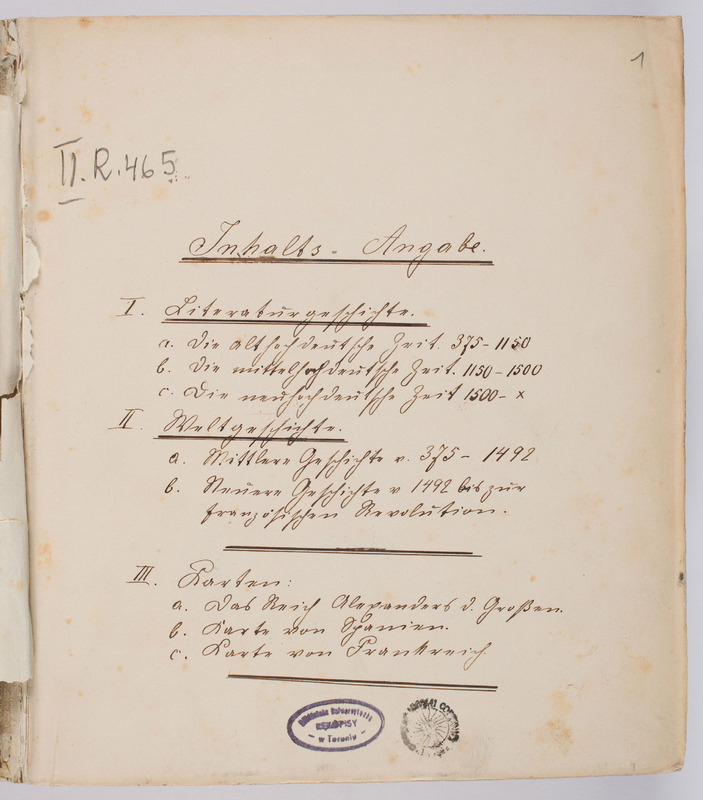 1
II. R. 465
Inhalts-Angabe.
I. Literaturgeschichte.
a. Die althochdeutsche Zeit. 375-1150
b. Die mittelhochdeutsche Zeit. 1150-1500
c. Die neuhochdeutsche Zeit 1500- x
II. Weltgeschichte.
a. Mittlere Geschichte v. 375 - 1492
b. Neuere Geschichte v 1492 bis zur
französischen Revolution.
III. Karten:
a. Das Reich Alexanders d. Großen.
b. Karte von Spanien.
c. Karte von Frankreich
Biblioteka Uniwersytecka
RĘKOPISY
- w Toruniu -